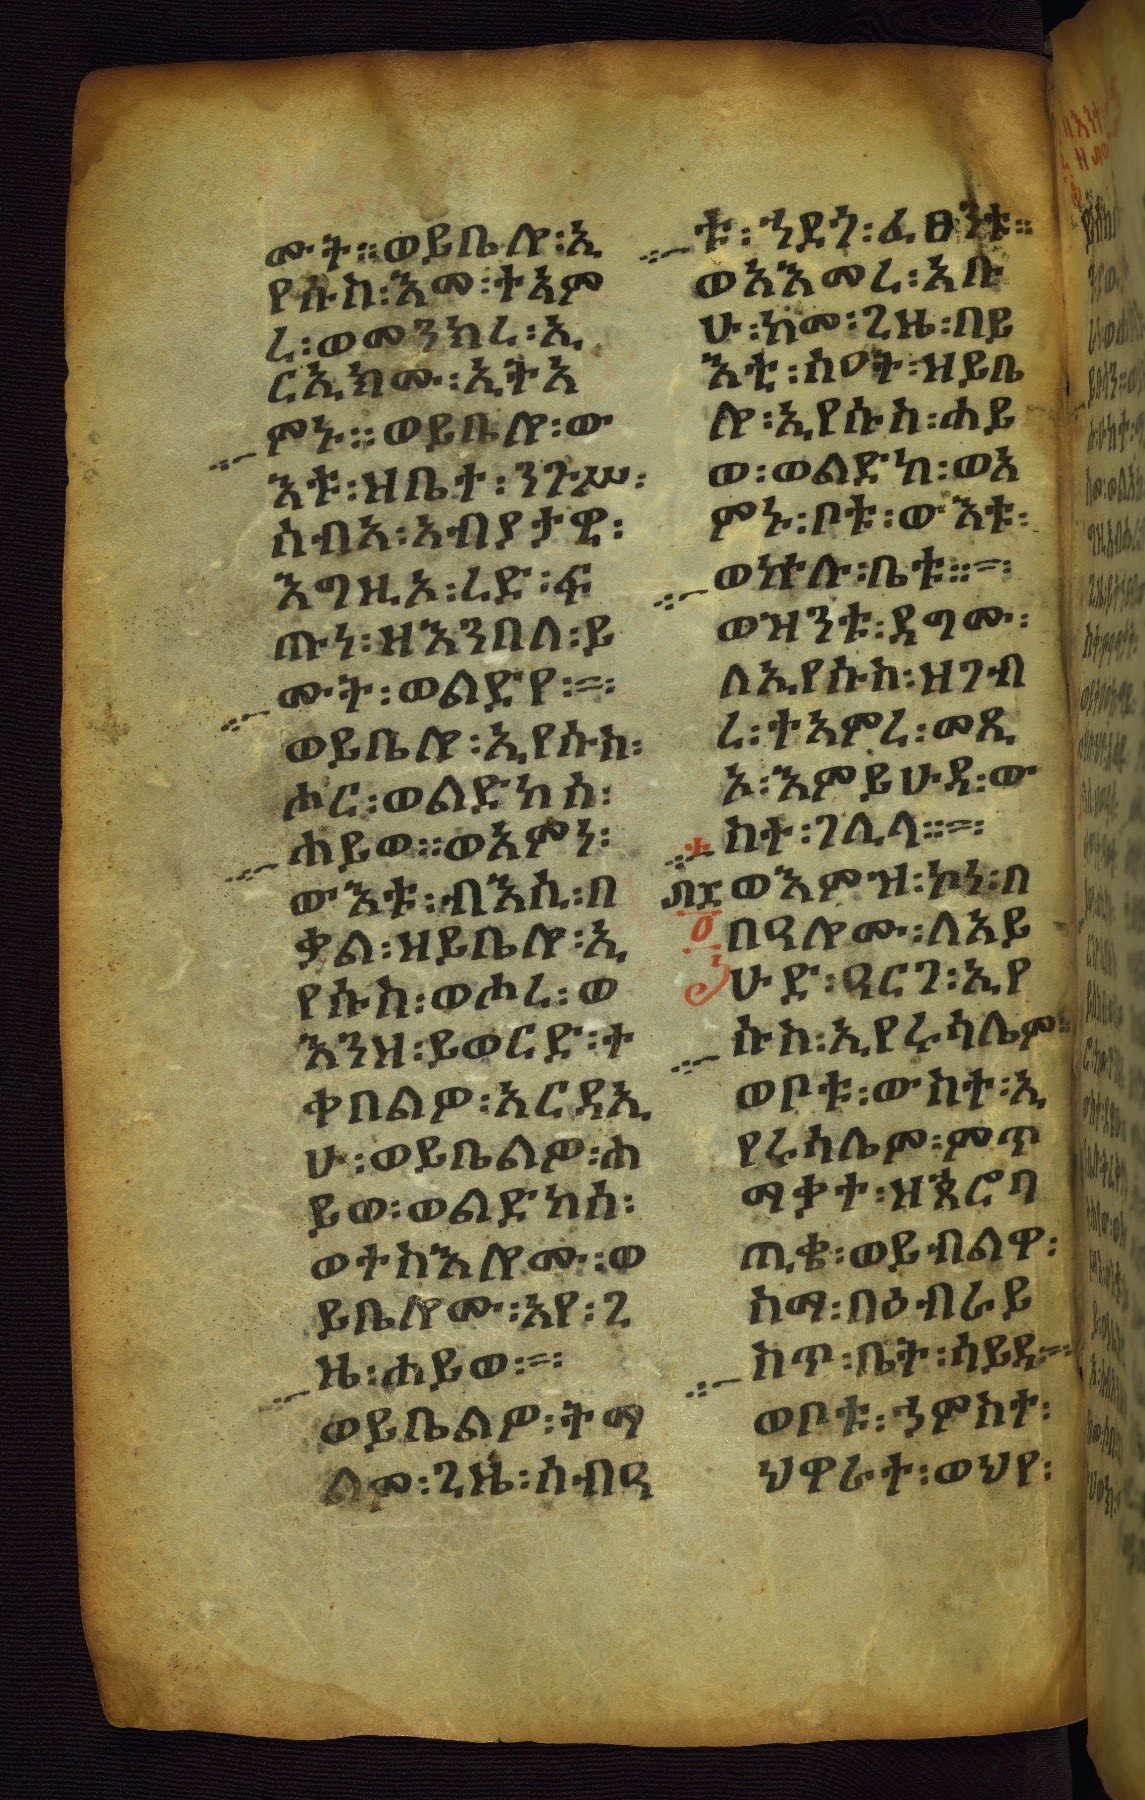 ሙት ። ወይቤሎ ፡ ኢ
የሱስ ፡ እመ ፡ ተአም
ረ ፡ ወመንክረ ፡ ኢ
ርኢክሙ ፡ ኢትአ
ምኑ ። ወይቤሎ ፡ ው
እቱ ፡ ዝቤተ ፡ ንጉሥ ፡
ሰብአ ፡ አብያታዊ ፡
እግዚኦ ፡ ረድ ፡ ፍ
ጡነ ፡ ዘእንበለ ፡ ይ
ሙት ፡ ወልድየ ፡ = ፡
ወይቤሎ ፡ ኢየሱስ ፡
ሖር ፡ ወልድከሰ ፡
ሐይወ ። ወአምነ ፡
ውእቱ ፡ ብእሲ ፡ በ
ቃል ፡ ዝይቤሎ ፡ ኢ
የሱስ ፡ ወሖረ ፡ ወ
እንዝ ፡ ይወርድ ፡ ተ
ቀበልዎ ፡ አርዳኢ
ሁ ፡ ወይቤልዎ ፡ ሐ
ይወ ፡ ወልድከሰ ፡
ወተስእሎሙ ፡ ወ
ይቤሎሙ ፡ አየ ፡ ጊ
ዜ ፡ ሐይወ ፡ = ፡
ወይቤልዎ ፡ ትማ
ልም ፡ ጊዜ ፡ ሰብዓ
ቱ ፡ ኀደጎ ፡ ፈፀንቱ ።
ወአእመረ ፡ አቡ
ሁ ፡ ከመ ፡ ጊዜ ፡ በይ
እቲ ፡ ሰዐት ፡ ዝይቤ
ሎ ፡ ኢየሱስ ፡ ሐይ
ወ ፡ ወልድከ ፡ ወአ
ምኑ ፡ ቦቱ ፡ ውእቱ ፡
ወኵሉ ፡ ቤቱ ። = ፡
ወዝንቱ ፡ ዳግሙ ፡
ለኢየሱስ ፡ ዝገብ
ረ ፡ ተአምረ ፡ መጺ
ኦ ፡ እምይሁዳ ፡ ው
ስተ ፡ ገሊላ ። = ፡
ወእምዝ ፡ ኮነ ፡ በ
በዓሎሙ ፡ ለአይ
ሁድ ፡ ዓርገ ፡ ኢየ
ሱስ ፡ ኢየሩሳሌም ፡
ወቦቱ ፡ ውስተ ፡ ኢ
የሩሳሌም ፡ ምጥ
ማቃተ ፡ ዝጰሮባ
ጢቄ ፡ ወይብልዋ ፡
ስማ ፡ በዕብራይ
ስጥ ፡ ቤት ፡ ሳይዳ ፡ = ፡
ወቦቱ ፡ ኀምስተ ፡
ህዋራተ ፡ ወህየ ፡